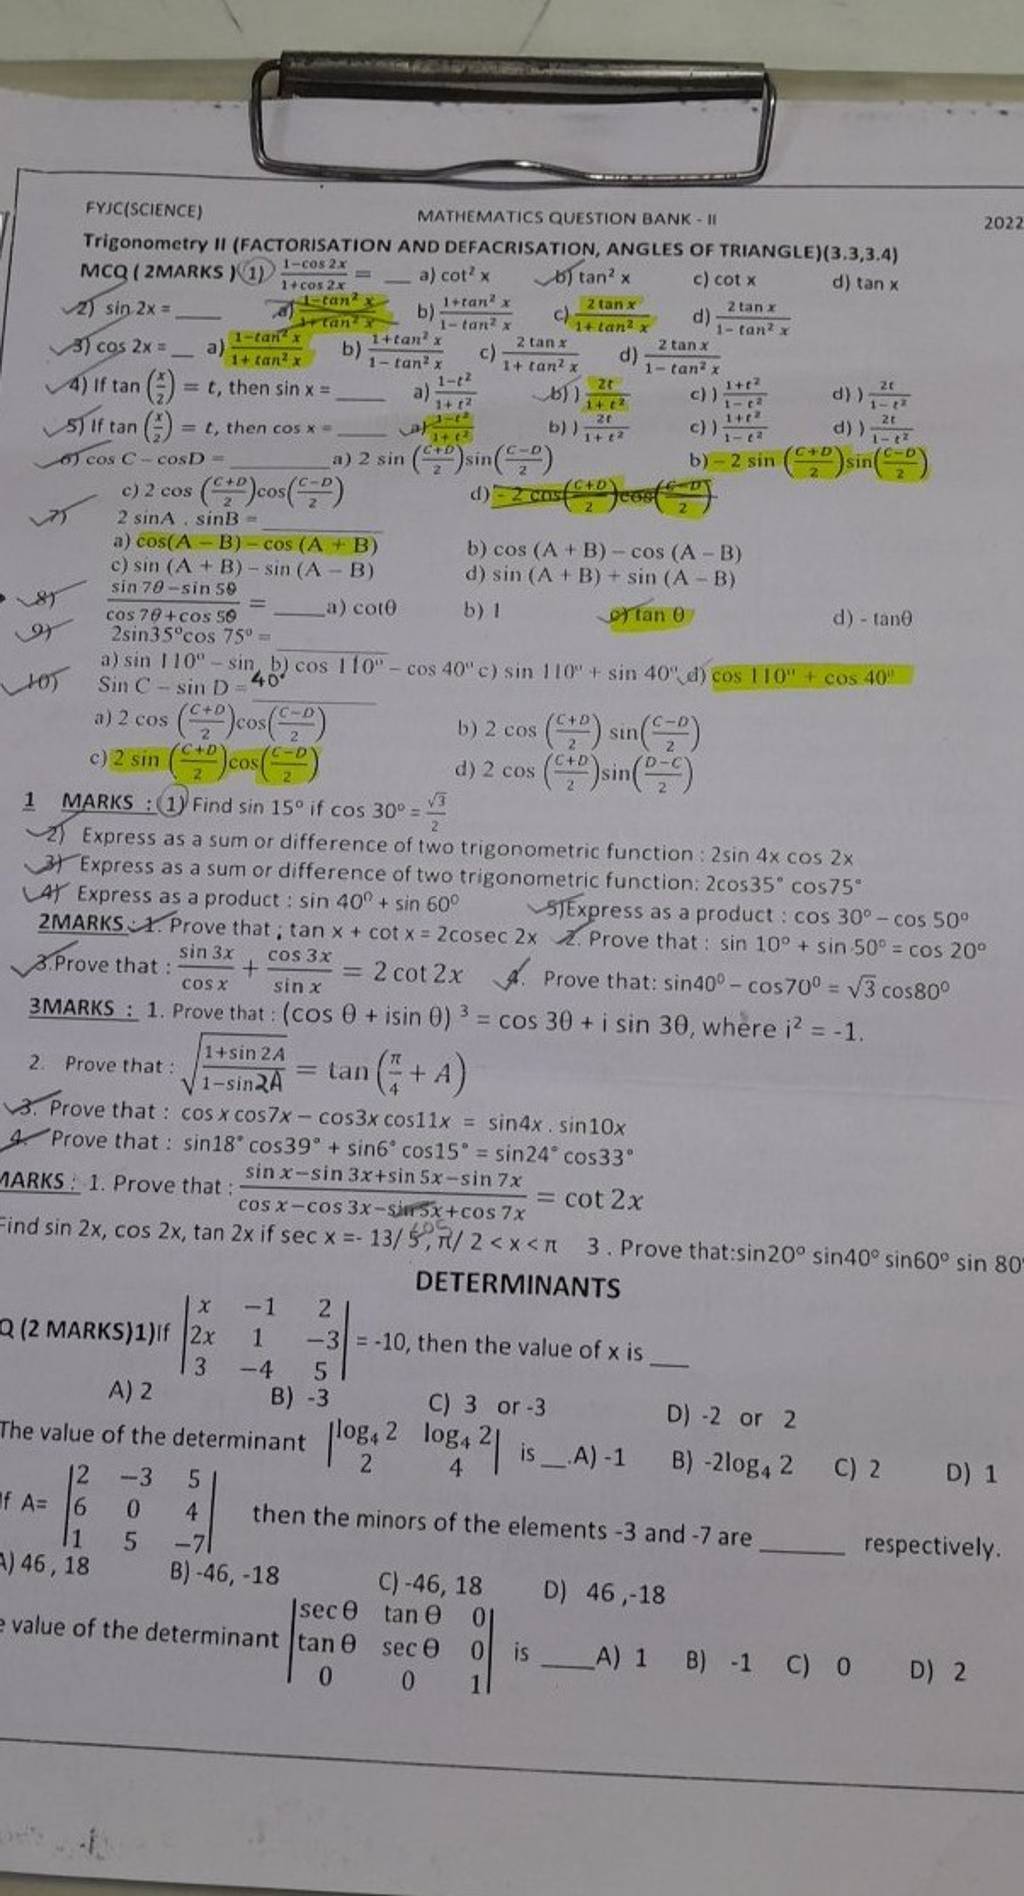 FYJC(SCIENCE) MATHEMATICS QUESTION BANK - II 2022
Trigonometry II (FACTORISATION AND DEFACRISATION, ANGLES OF TRIANGLE)(3.3,3.4)
MCQ ( 2MARKS ) 1) (1−cos 2x)/(1+cos 2x) = __ a) cot² x b) tan² x c) cot x d) tan x
2) sin 2x = ____ a) (1−tan² x)/(1+tan² x) b) (1+tan² x)/(1− tan² x) c) (2 tan x)/(1+ tan² x) d) (2 tan x)/(1− tan² x)
3) cos 2x = __ a) (1−tan² x)/(1+ tan² x) b) (1+tan² x)/(1− tan² x) c) (2 tan x)/(1+ tan² x) d) (2 tan x)/(1− tan² x)
4) If tan (x/2) = t, then sin x = ____ a) (1−t²)/(1+ t²) b) ) 2t/(1+ t²) c) ) (1+t²)/(1− t²) d) ) 2t/(1− t²)
5) If tan (x/2) = t, then cos x = ____ a) (1−t²)/(1+ t²) b) ) 2t/(1+ t²) c) ) (1+t²)/(1− t²) d) ) 2t/(1− t²)
6) cos C – cosD = ________ a) 2 sin ((C+D)/2)sin((C−D)/2) b) – 2 sin ((C+D)/2)sin((C−D)/2)
c) 2 cos ((C+D)/2)cos((C−D)/2) d) – 2 cos((C+D)/2)cos((C−D)/2)
7) 2 sinA . sinB = ________
a) cos(A – B) – cos (A + B) b) cos (A + B) – cos (A – B)
c) sin (A + B) – sin (A – B) d) sin (A + B) + sin (A – B)
8) (sin 7θ−sin 5θ)/(cos 7θ+cos 5θ) = ____ a) cotθ b) 1 c) tan θ d) - tanθ
9) 2sin35ºcos 75º = ________
a) sin 110º – sin 40° b) cos 110º – cos 40º c) sin 110º + sin 40º d) cos 110º + cos 40º
10) Sin C – sin D = ________
a) 2 cos ((C+D)/2)cos((C−D)/2) b) 2 cos ((C+D)/2) sin((C−D)/2)
c) 2 sin ((C+D)/2)cos((C−D)/2) d) 2 cos ((C+D)/2)sin((D−C)/2)
1 MARKS : 1) Find sin 15º if cos 30º = √3/2
2) Express as a sum or difference of two trigonometric function : 2sin 4x cos 2x
3) Express as a sum or difference of two trigonometric function: 2cos35° cos75°
4) Express as a product : sin 40⁰ + sin 60⁰ 5)Express as a product : cos 30º – cos 50º
2MARKS : 1. Prove that ; tan x + cot x = 2cosec 2x 2. Prove that : sin 10º + sin 50º = cos 20º
3.Prove that : (sin 3x)/(cos x) + (cos 3x)/(sin x) = 2 cot 2x 4. Prove that: sin40⁰ – cos70⁰ = √3 cos80⁰
3MARKS : 1. Prove that : (cos θ + isin θ) ³ = cos 3θ + i sin 3θ, where i² = -1.
2. Prove that : √((1+sin 2A)/(1−sin2A)) = tan (π/4 + A)
3. Prove that : cos x cos7x – cos3x cos11x = sin4x . sin10x
4. Prove that : sin18° cos39° + sin6° cos15° = sin24° cos33°
MARKS : 1. Prove that : (sin x−sin 3x+sin 5x−sin 7x)/(cos x−cos 3x−sin 5x+cos 7x) = cot 2x
cos
Find sin 2x, cos 2x, tan 2x if sec x =- 13/ 5, π/ 2 < x < π 3 . Prove that:sin20º sin40º sin60º sin 80
DETERMINANTS
Q (2 MARKS)1)If |x −1 2; 2x 1 −3; 3 −4 5| = -10, then the value of x is ___
A) 2 B) -3 C) 3 or -3 D) -2 or 2
The value of the determinant |log₄ 2 log₄ 2; 2 4| is __.A) -1 B) -2log₄ 2 C) 2 D) 1
If A= |2 −3 5; 6 0 4; 1 5 −7| then the minors of the elements -3 and -7 are ______ respectively.
A) 46 , 18 B) -46, -18 C) -46, 18 D) 46 ,-18
e value of the determinant |sec θ tan θ 0; tan θ sec θ 0; 0 0 1| is ____A) 1 B) -1 C) 0 D) 2